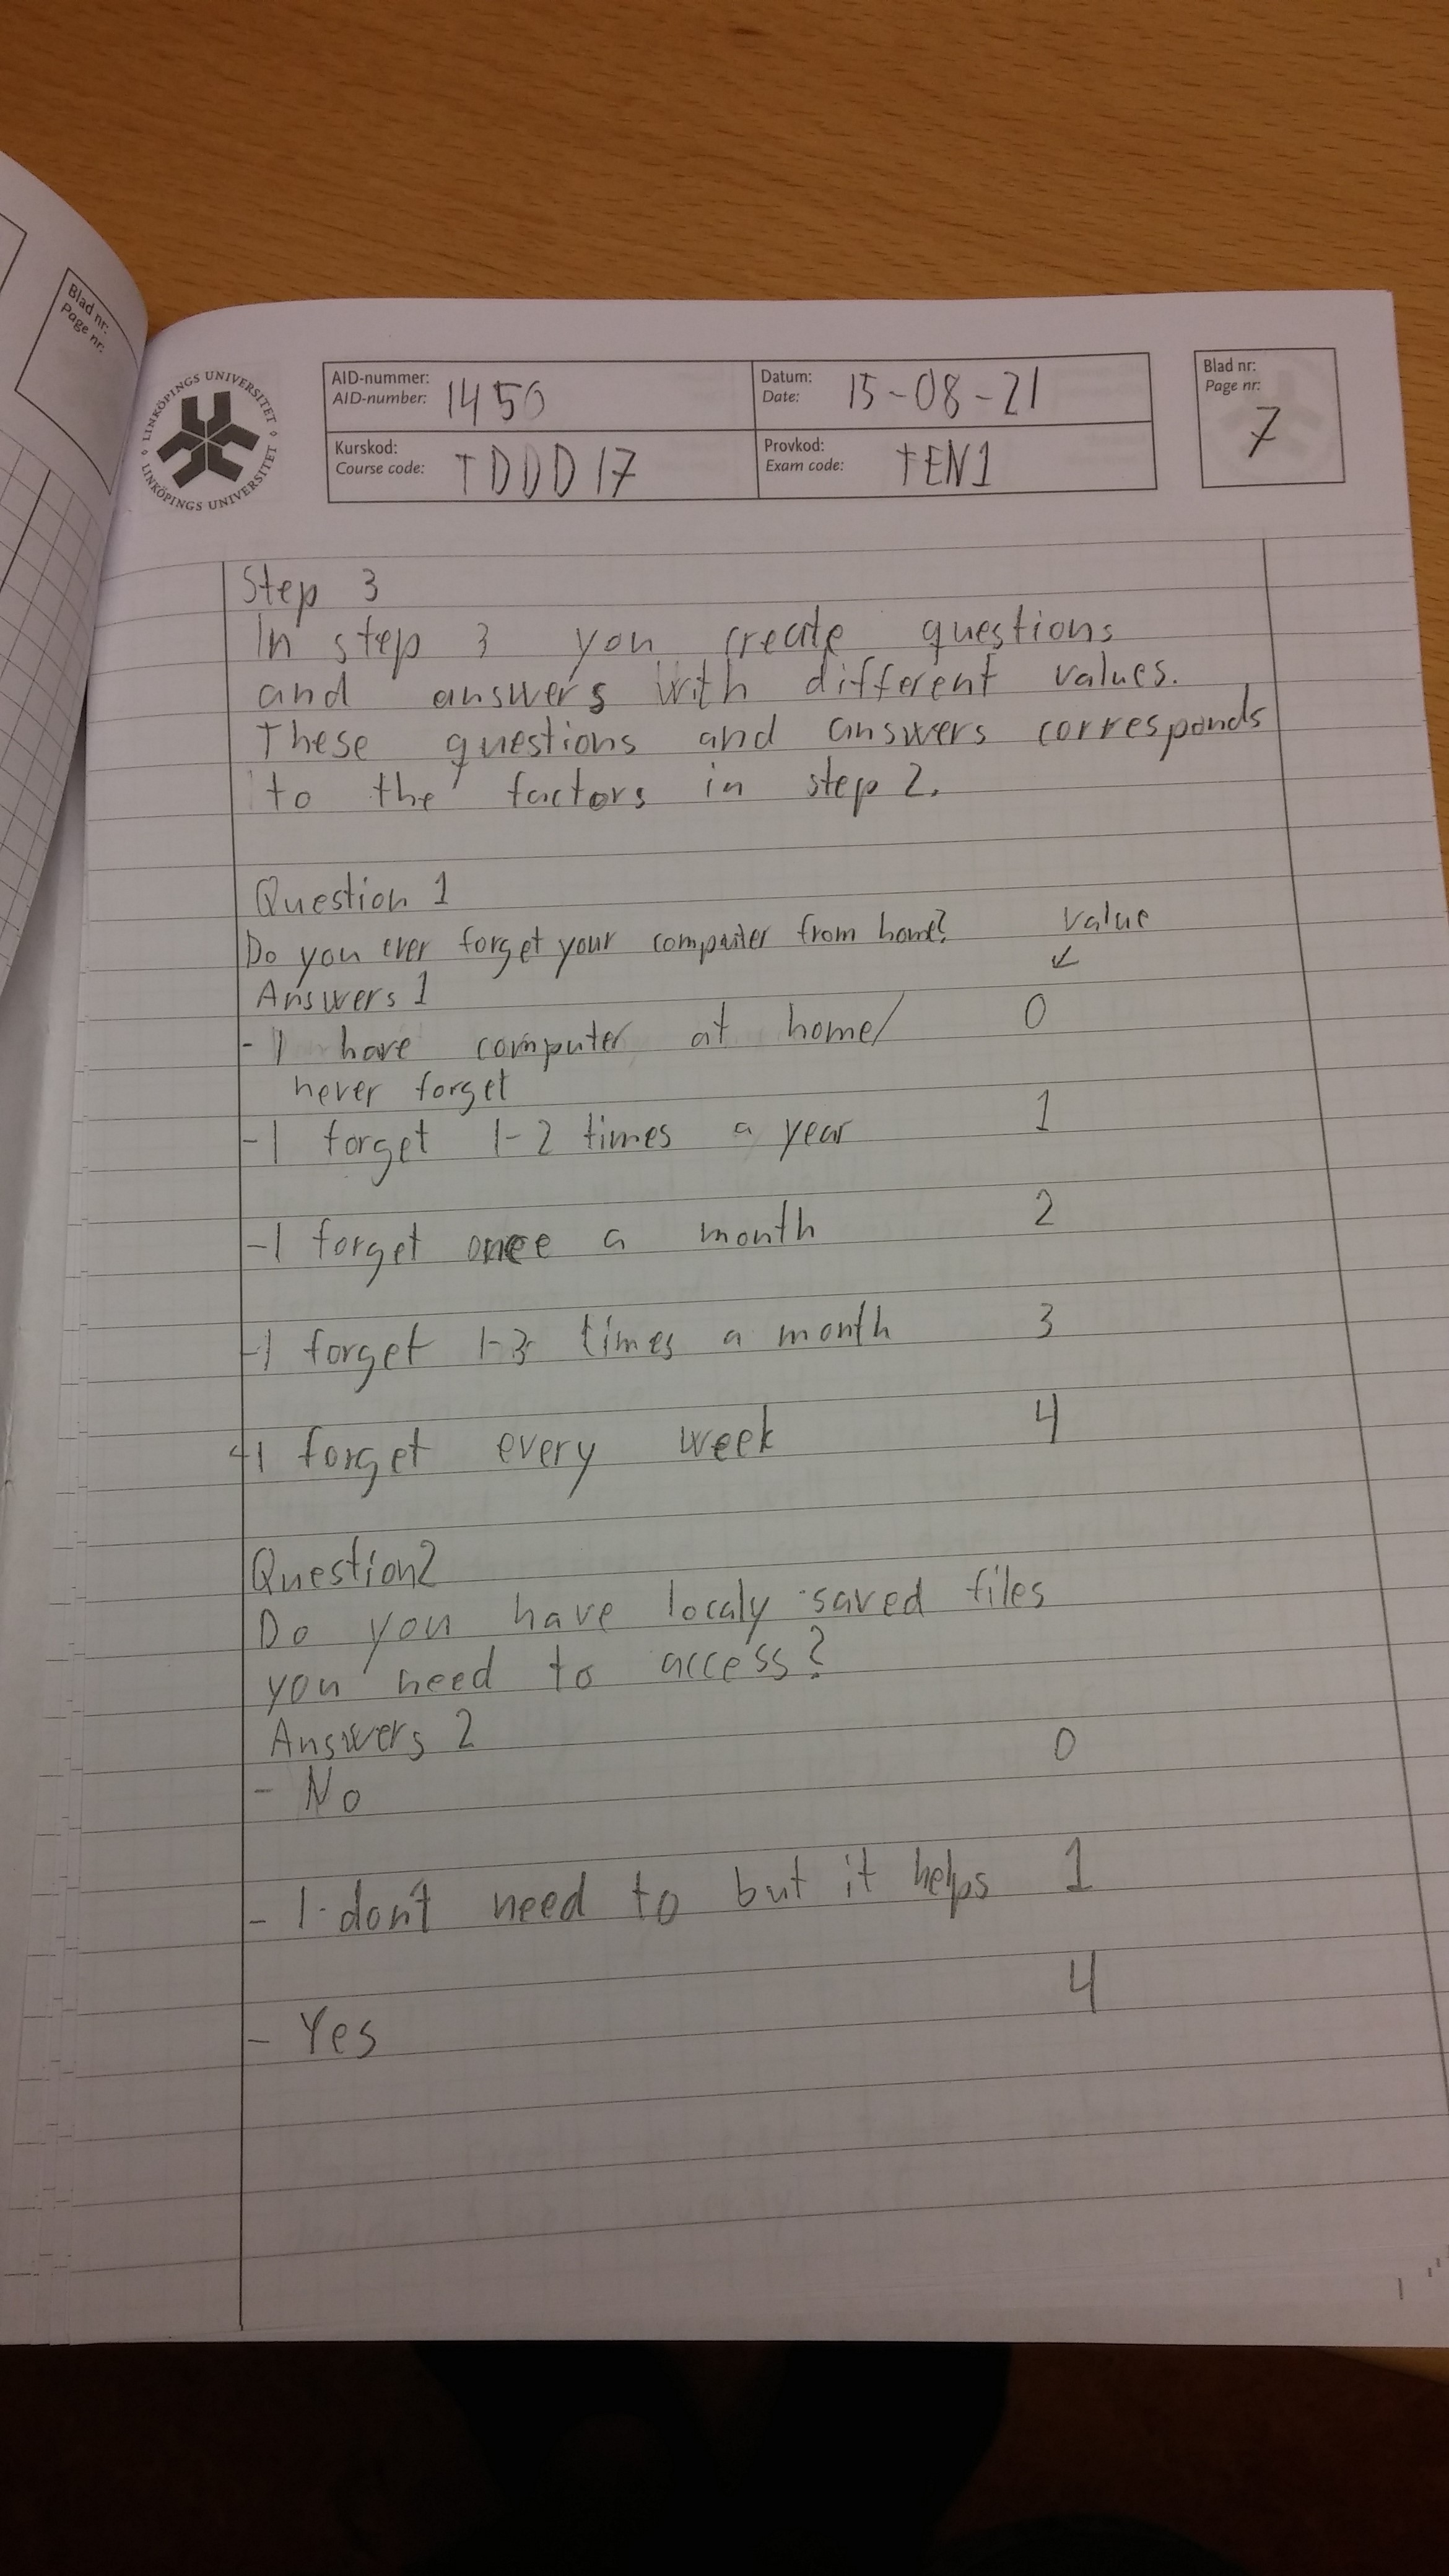 Blad nr:
Page nr:
LINKÖPINGS UNIVERSITET
LINKÖPINGS UNIVERSITET
AID-nummer:
AID-number: 1450
Datum:
Date: 15-08-21
Kurskod:
Course code: TDDD17
Provkod:
Exam code: TEN1
Blad nr:
Page nr:
7
Step 3
In step 3 you create questions
and answers with different values.
These questions and answers corresponds
to the factors in step 2.
Question 1
Do you ever forget your computer from home? value
Answers 1
- I have computer at home/ 0
never forget
- I forget 1-2 times a year 1
- I forget once a month 2
- I forget 1-3 times a month 3
- I forget every week 4
Question 2
Do you have localy saved files
you need to access?
Answers 2
- No 0
- I don't need to but it helps 1
- Yes 4